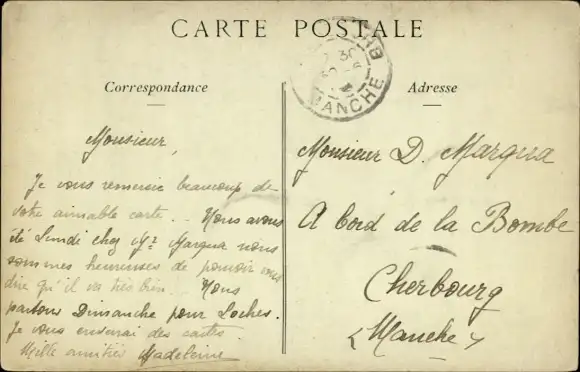 CARTE POSTALE
Correspondance
Monsieur,
Je vous remercie beaucoup de
votre aimable carte. - Nous avons
été Lundi chez Mr Margua nous
sommes heureuses de pouvoir vous
dire qu'il va très bien... Nous
partons Dimanche pour Loches.
Je vous enverrai des cartes.
Mille amitiés Madeleine
Adresse
Monsieur D. Margua
A bord de la Bombe
Cherbourg
(Manche)
30
MANCHE